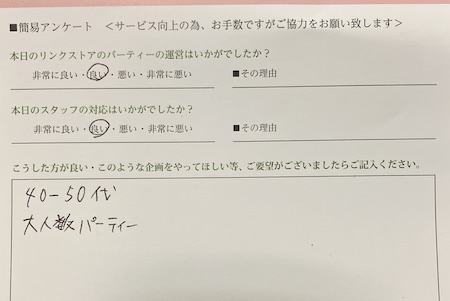 ■簡易アンケート　＜サービス向上の為、お手数ですがご協力をお願い致します＞
本日のリンクストアのパーティーの運営はいかがでしたか？
非常に良い・良い・悪い・非常に悪い　■その理由
本日のスタッフの対応はいかがでしたか？
非常に良い・良い・悪い・非常に悪い　■その理由
こうした方が良い・このような企画をやってほしい等、ご要望がございましたらご記入ください。
40-50代
大人数パーティー